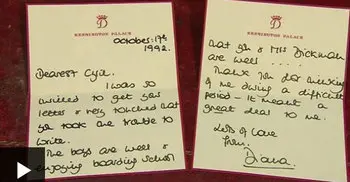 KENSINGTON PALACE
October: 17th
1992.
Dearest Cyril.
I was so
thrilled to get your
letter & very touched that
you took the trouble to
write.
The boys are well &
enjoying boarding school
KENSINGTON PALACE
that you & Mrs Dickman
are well .....
Thank you for thinking
of me during a difficult
period - it meant a
great deal to me.
Lots of love
from,
Diana.